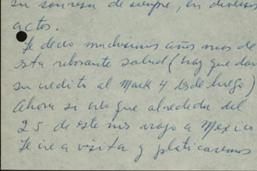 su sonrisa de siempre, en diversos
actos.
Te deseo muchísimos años más de
esta rebosante salud (hay que dar
su crédito al Mack 4 desde luego)
Ahora si creo que alrededor del
25 de este mes vengo a Mexico
Te iré a visitar y platicaremos